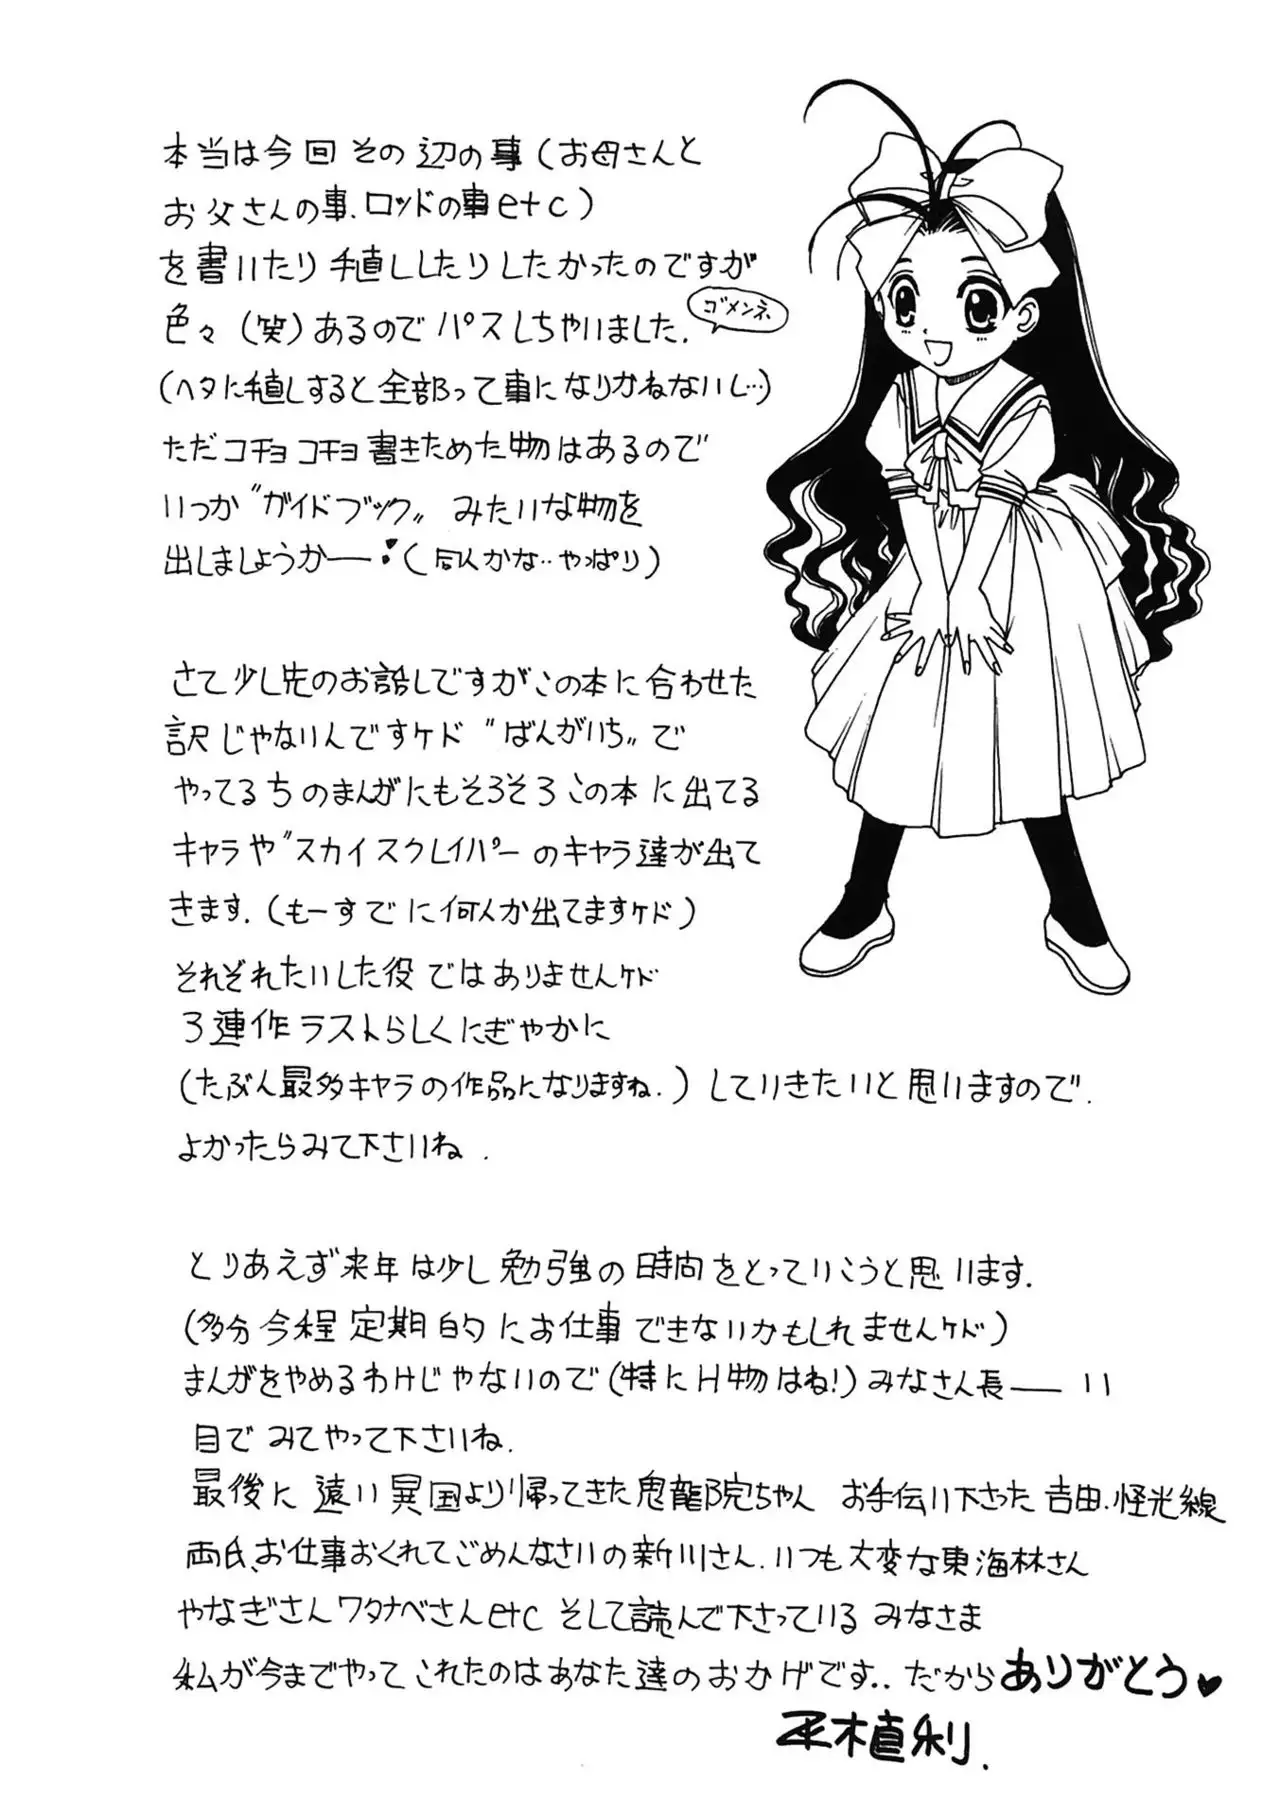 本当は今回その辺の事(お母さんと
お父さんの事、ロッドの事etc)
を書いたり手直ししたりしたかったのですが
色々(笑)あるのでパスしちゃいました.
ゴメンネ
(ヘタに手直しすると全部って事になりかねないし…)
ただコチョコチョ書きためた物はあるので
いつか〝ガイドブック〟みたいな物を
出しましょうかー(同人かな‥やっぱり)
さて少し先のお話しですがこの本に合わせた
訳じゃないんですケド〝ばんがいち〟で
やってるちのまんがにもそろそろこの本に出てる
キャラや〝スカイスクレイパーのキャラ達が出て
きます.(もーすでに何人か出てますケド)
それぞれたいした役ではありませんケド
3連作ラストらしくにぎやかに
(たぶん最多キャラの作品になりますね.)していきたいと思いますので.
よかったらみて下さいね.
とりあえず来年は少し勉強の時間をとっていこうと思います.
(多分今程定期的にお仕事できないかもしれませんケド)
まんがをやめるわけじゃないので(特にH物はね!)みなさん長——い
目でみてやって下さいね.
最後に遠い異国より帰ってきた鬼龍院ちゃん お手伝い下さった吉由.怪光線
両氏、お仕事おくれてごめんなさいの新川さん.いつも大変な東海林さん
やなぎさんワタナベさんetc そして読んで下さっているみなさま
私が今までやってこれたのはあなた達のおかげです..だからありがとう♥
平木直利.